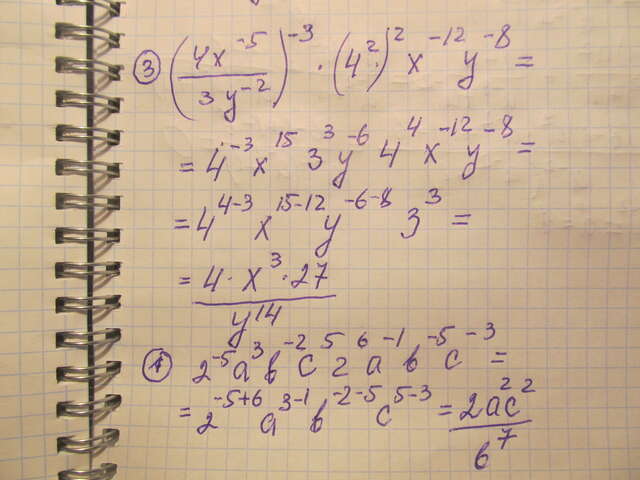 ③ (4x⁻⁵/3y⁻²)⁻³ · (4²·)² x⁻¹² y⁻⁸ =
= 4⁻³ x¹⁵ 3³ y⁻⁶ 4⁴ x⁻¹² y⁻⁸ =
= 4⁴⁻³ x¹⁵⁻¹² y⁻⁶⁻⁸ 3³ =
= 4 · x³ · 27 / y¹⁴
④ 2⁻⁵ a³ b⁻² c⁵ 2⁶ a⁻¹ b⁻⁵ c⁻³ =
= 2⁻⁵⁺⁶ a³⁻¹ b⁻²⁻⁵ c⁵⁻³ = 2a²c² / b⁷